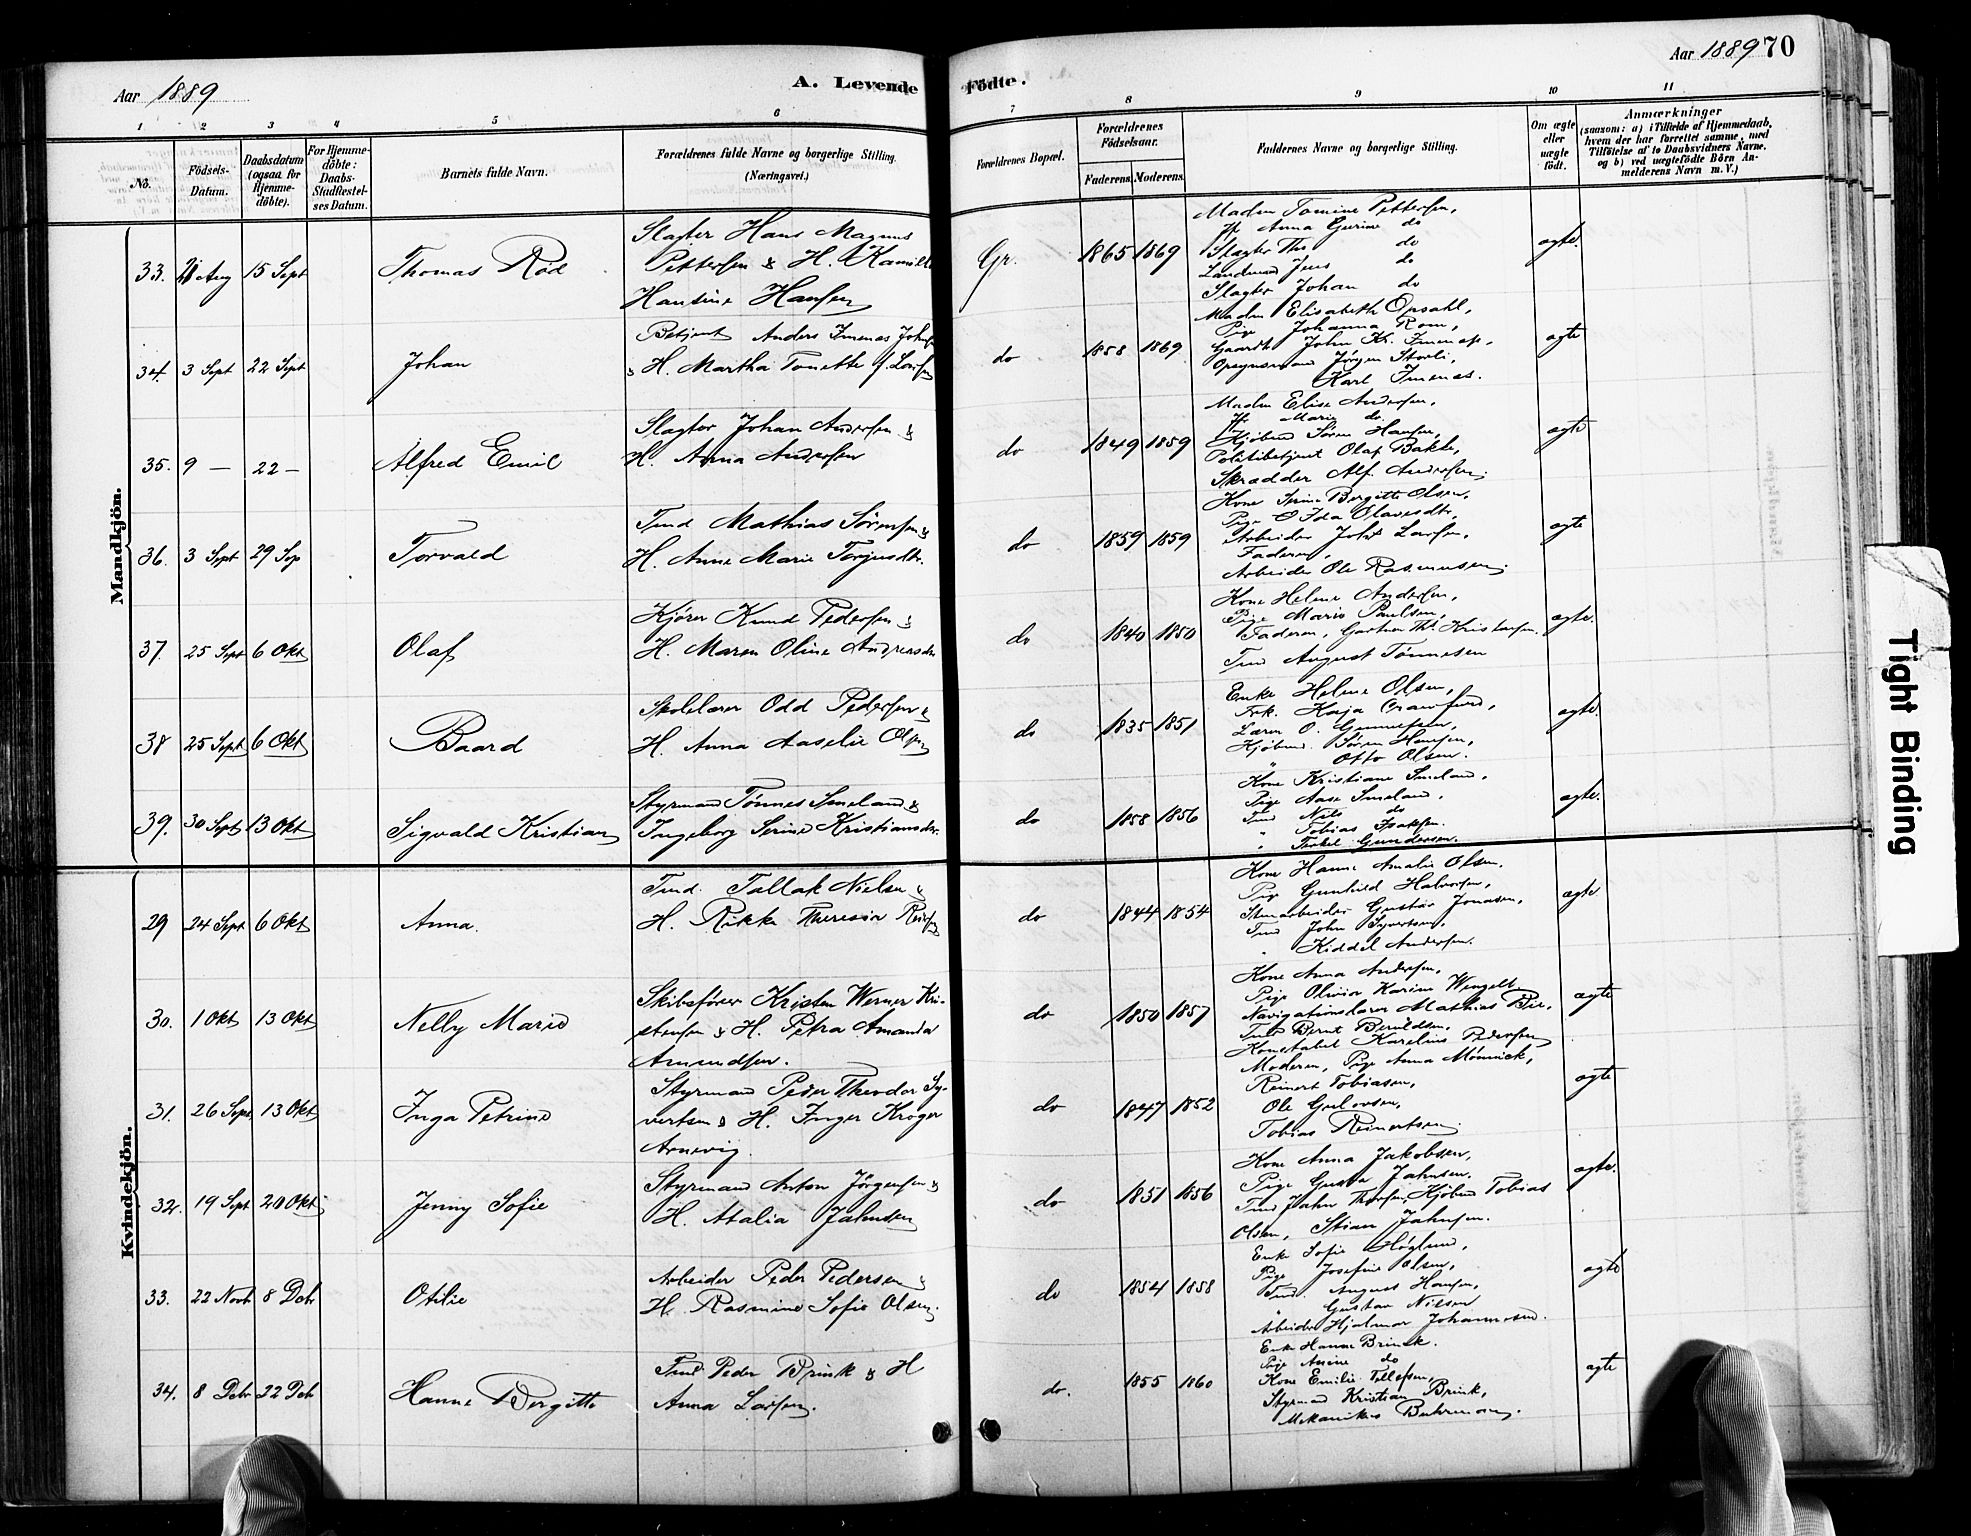 Aar 1889
A. Levende Födte.
Aar 1889 70
1 2 3 4 5 6 7 8 9 10 11
No.
Födsels-Datum.
Daabsdatum (ogsaa for Hjemme-döbte).
For Hjemme-döbte: Daabs-Stadfæstel-ses Datum.
Barnets fulde Navn.
Forældrenes fulde Navne og borgerlige Stilling. (Næringsvei.)
Forældrenes Bopæl.
Forældrenes Födselsaar.
Faderens. Moderens.
Faddernes Navne og borgerlige Stilling.
Om ægte eller uægte födt.
Anmærkninger
(saasom: a) i Tilfælde af Hjemmedaab, hvem der har forrettet samme, med Tilföielse af to Daabsvidners Navne, og b) ved uægtefödte Börn Anmelderens Navn m. V.)
Mandkjön.
33. Aug 15 Sept Thomas Röd
Slagter Hans Magnus
Pettersen & H. Kamilla
Hansine Hansen
Gr. 1865 1869
Madm Tomine Pettersen,
Jf. Anna Gurine do
Slagter Ths do
Landmand Jens do
Slagter Johan do
ægte.
34. 3 Sept 22 Sept Johan
Betjent Anders Imenes
& H. Martha Tonette f. Larsen
do 1858 1869
Madm Elisabeth Opsahl,
Pige Johanna Rom,
Gaardb. John Kr. Imenæs,
Opsynsmand Jörgen Storli,
Karl Imenæs.
ægte
35. 9 — 22 — Alfred Emil
Slagter Johan Andersen &
H. Anna Andersen
do 1849 1859
Madm Elise Andersen,
Jf. Marie do
Kjöbmd Sören Hansen,
Politibetjent Olaf Bakke,
Skrædder Alf. Andersen.
ægte
36. 3 Sept 29 Sep Torvald
Tmd Mathias Sörensen &
H. Anne Marie Torjusdtr.
do 1859 1859
Kone Serine Bergitte Olsen,
Pige Ida Olavesdtr,
Arbeider Larsen,
Faderen,
Arbeider Ole Rasmussen.
ægte
37. 25 Sept 6 Okt Olaf
Kjörer Knud Pedersen &
H. Maren Oline Andreasdtr
do 1840 1850
Kone Helene Andersen,
Pige Marie Paulsen,
Faderen, Gartner Th. Kristensen,
Tmd August Tönnesen
ægte.
38 25 Sept 6 Okt Baard
Skolelærer Odd Pedersen &
H. Anna Aaselie Olsen
do 1835 1851
Enke Helene Olsen,
Frk. Kaja Crawfurd,
Lærer O. Gunnufsen,
Kjöbmd. Sören Hansen,
" Otto Olsen.
ægte.
39. 30 Sept 13 Okt Sigvald Kristian
Styrmand Tönnes Smeland &
Ingeborg Serine Kristiansdtr.
do 1858 1856
Kone Kristiane Smeland,
Pige Aase Smeland,
Tmd Nils do
" Tobias Isaksen.
" Terkel Gundersen.
ægte.
Kvindekjön.
29 24 Sept 6 Okt Anna.
Tmd. Tallak Nielsen &
H. Rikke Theresia
do 1844 1854
Kone Hanne Amalie Olsen,
Pige Gunhild Halvorsen,
Stenarbeider Gustav Jonasen,
Tmd John Syvertsen,
" Kiddel Andersen.
ægte.
30. 1 Okt 13 Okt Nelly Marie
Skibsförer Kristen Werner Kri-
stensen & H. Petra Amanda
Amundsen.
do 1850 1857
Kone Anna Andersen,
Pige Olivia Karine Wengelt
Navigationslærer Mathias Bie,
Tmd Bernt Berntdsen,
Konstabel Karelius Pedersen
ægte
31. 26 Sept 13 Okt Inga Petrine
Styrmand Peder Theodor Sy-
vertsen & H. Inger Kröger
Arnevig.
do 1847 1852
Moderen, Pige Anna Mönnick,
Reinert Tobiasen,
Ole Gulovsen,
Tobias Reinertsen.
ægte
32. 19 Sept 20 Okt Jenny Sofie
Styrmand Anton Jörgensen &
H. Atalia Jahnsen
do 1851 1856
Kone Anna Jakobsen,
Pige Gusta Jahnsen,
Tmd Jahn Thorsen, Kjöbmd Tobias
Olsen, Stian Jahnsen.
ægte.
33. 22 Novb 8 Debr Otilie
Arbeider Peder Pedersen &
H. Rasmine Sofie Olsen.
do 1854 1858
Enke Sofie Höglund,
Pige Josefine Olsen,
Tmd. August Hansen,
" Gustav Nilsen
Arbeider Hjalmar Johannesen.
ægte
34. 8 Debr 22 Deb Hanne Bergitte
Tmd Peder Brink & H
Anna Larsen.
do. 1855 1860
Enke Hanne Brinck.
Pige Anine do
Kone Emilie Tellefsen,
Styrmand Kristian Brink,
Mekanikus Buhrmann.
ægte
Tight Binding